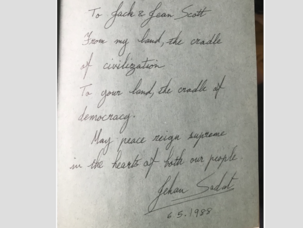 To Jack & Jean Scott
From my land, the cradle
of civilization
To your land, the cradle of
democracy.
May peace reign supreme
in the hearts of both our people
Jehan Sadat
6.5.1988